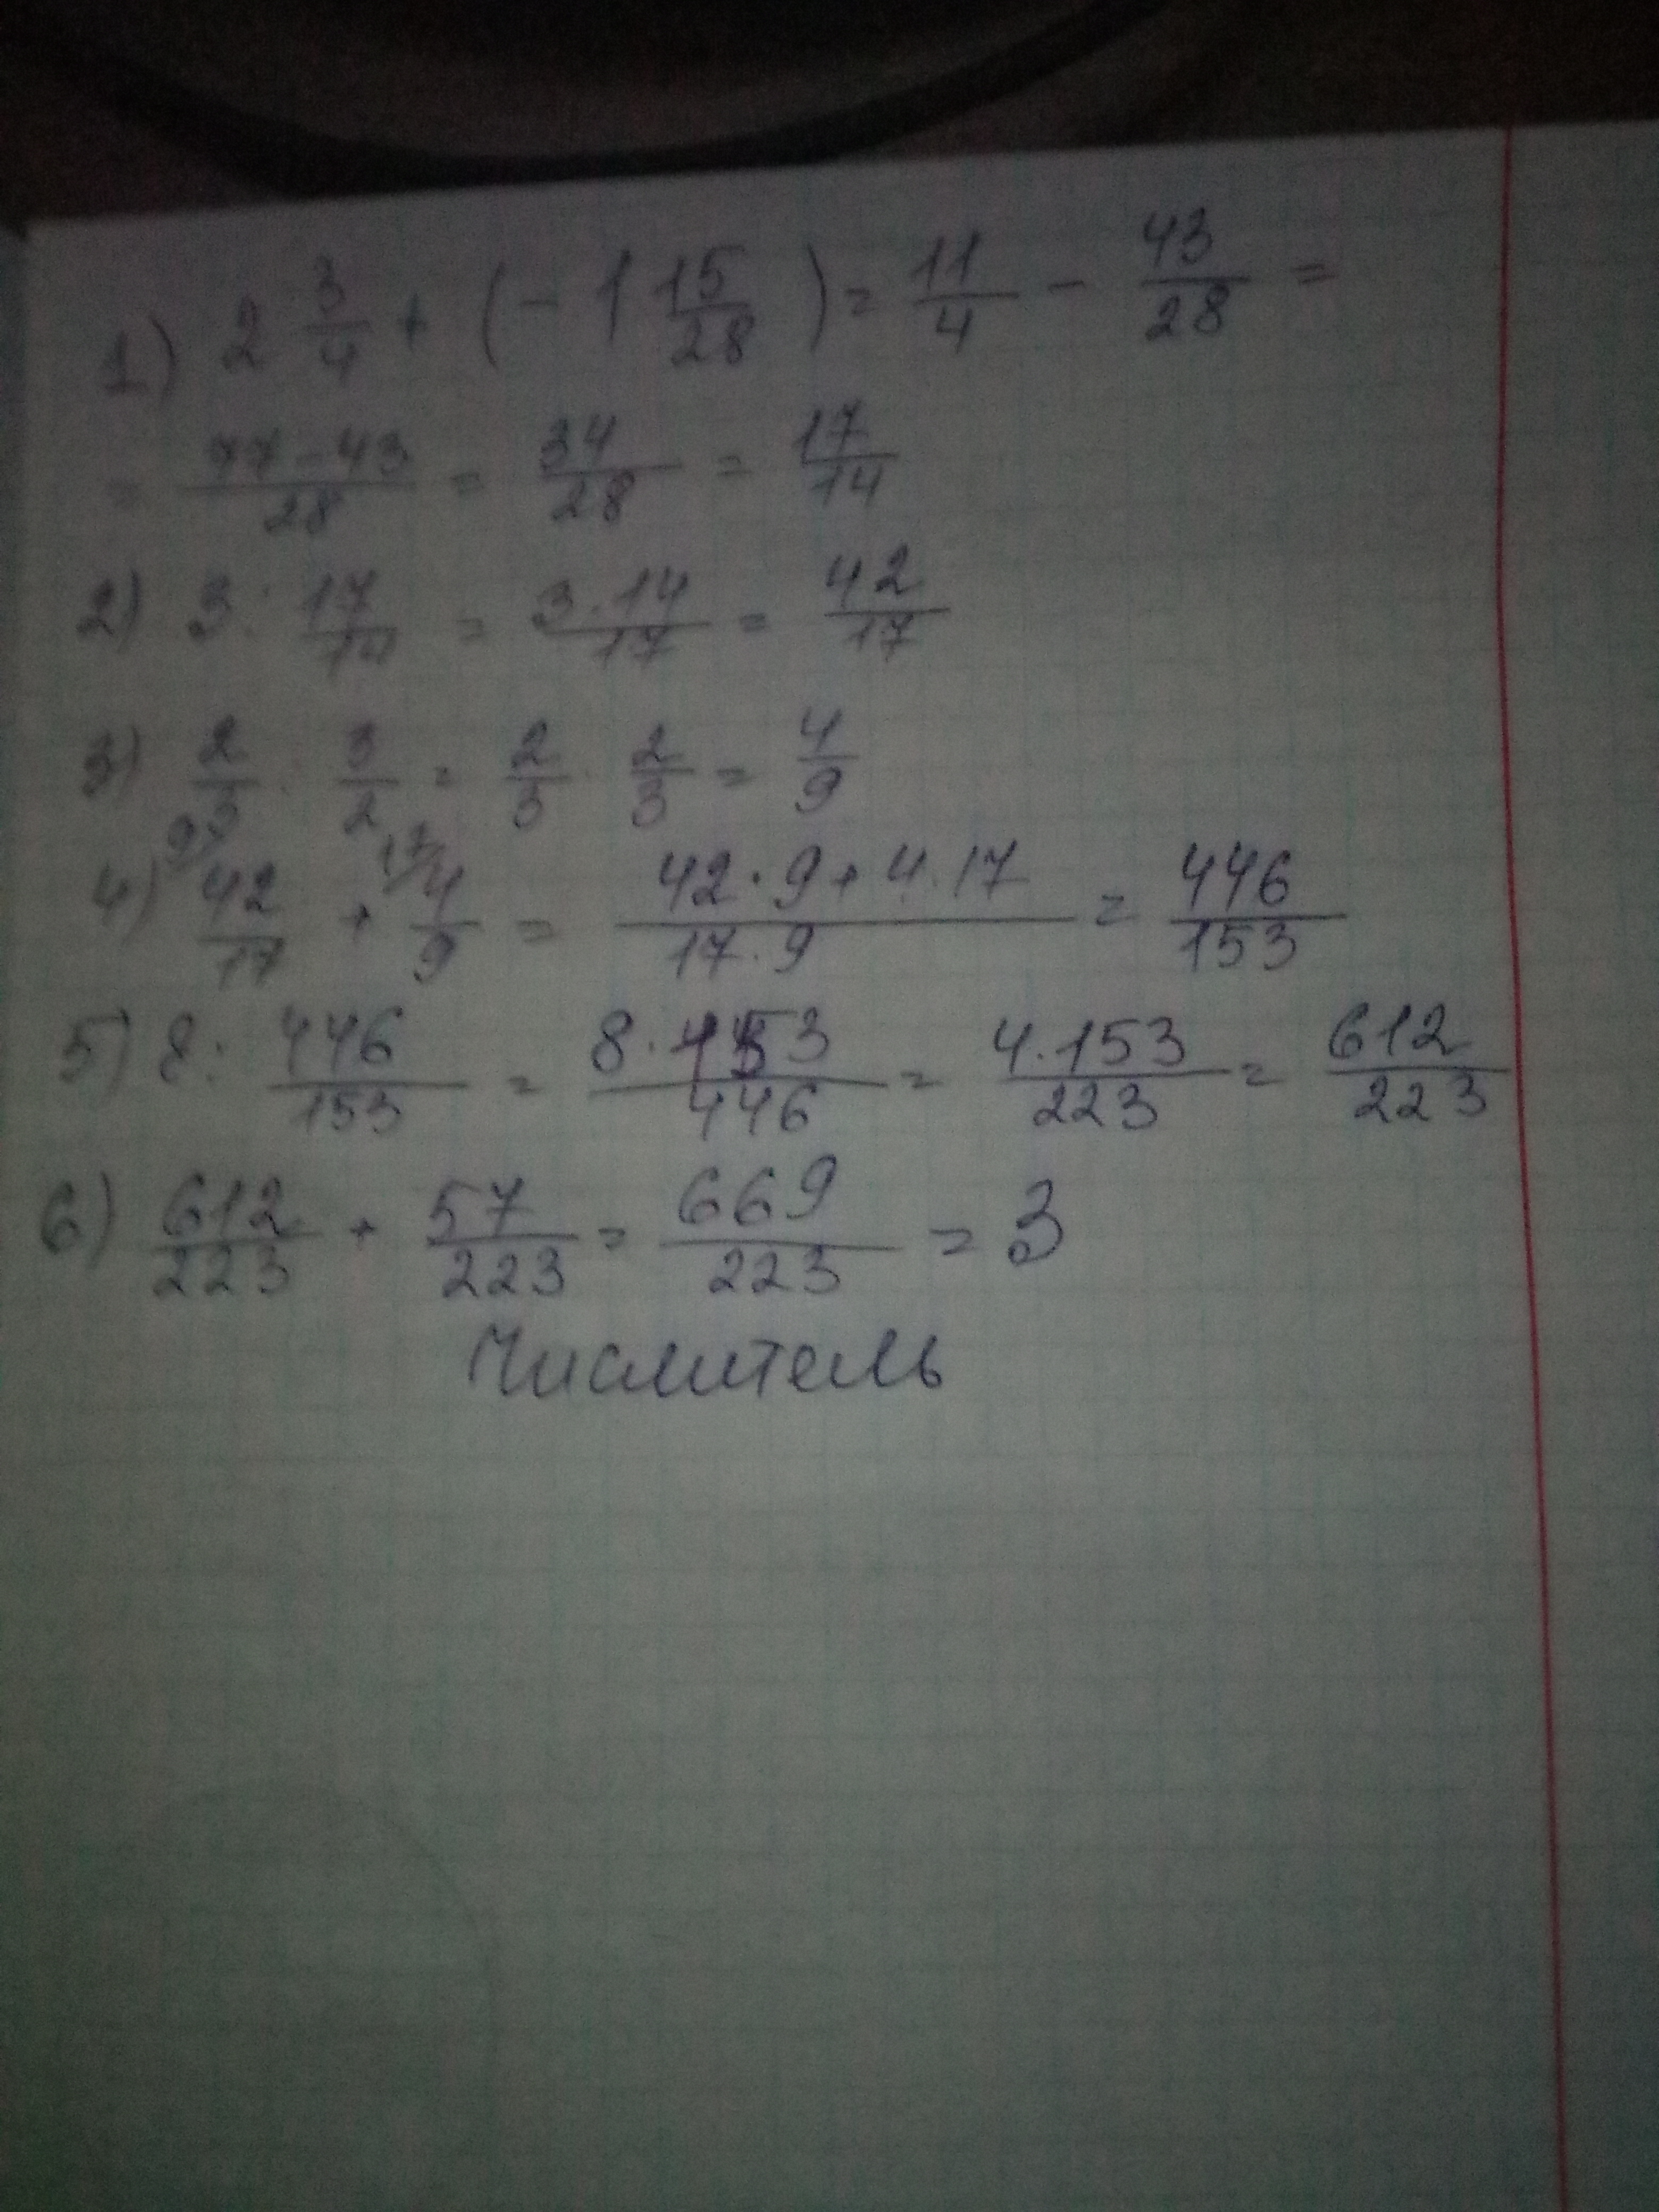 1) 2 3/4 + (- 1 15/28) = 11/4 - 43/28 =
= 77-43/28 = 34/28 = 17/14
2) 3 : 17/14 = 3·14/17 = 42/17
3) 2/3 : 3/2 = 2/3 · 2/3 = 4/9
4) 42/17 + 4/9 = 42·9+4·17/17·9 = 446/153
5) 8 : 446/153 = 8·153/446 = 4·153/223 = 612/223
6) 612/223 + 57/223 = 669/223 = 3
Числитель